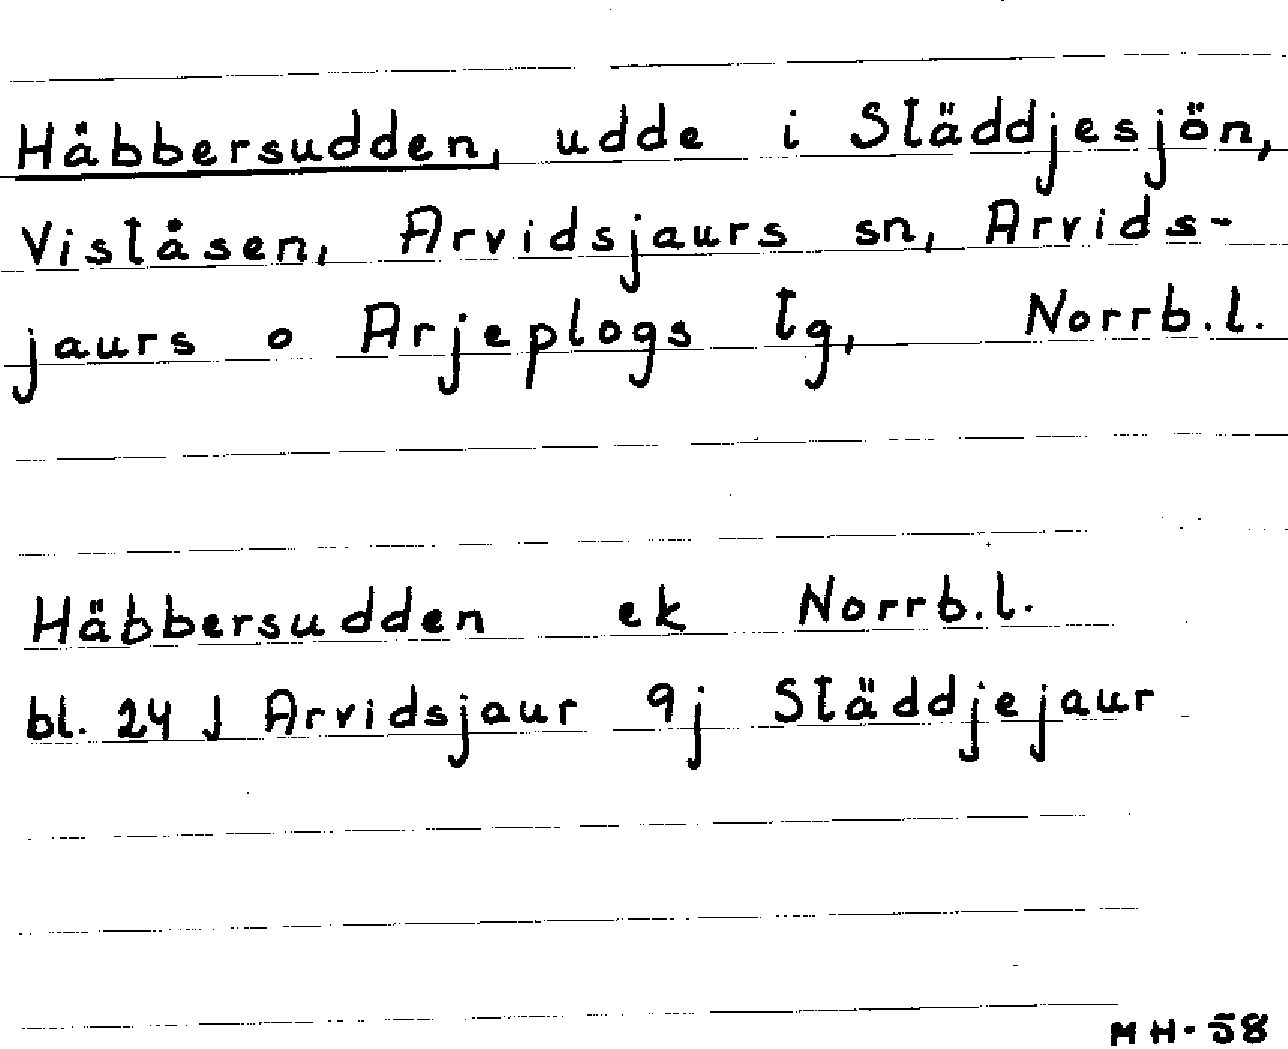 Häbbersudden, udde i Städdjesjön,
Viståsen, Arvidsjaurs sn, Arvids-
jaurs o Arjeplogs tg, Norrb.l.
Häbbersudden ek Norrb.l.
bl. 24 J Arvidsjaur 9j Städdjejaur
MH-58